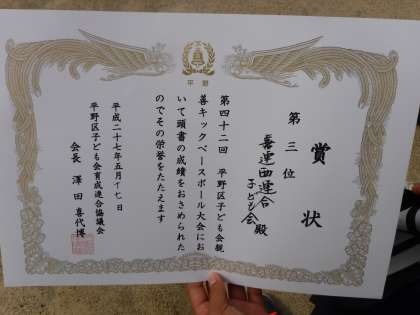 平野
賞状
第三位
喜連西連合
子ども会 殿
第四十二回 平野区子ども会親
善キックベースボール大会にお
いて頭書の成績をおさめられた
のでその栄誉をたたえます
平成二十七年五月十七日
平野区子ども会育成連合協議会
会長 澤田喜代博